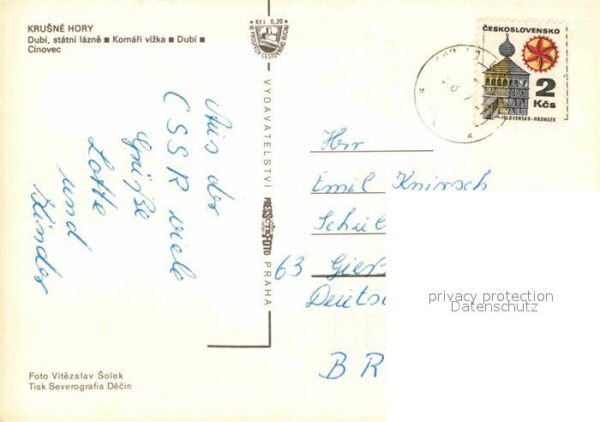 KRUŠNÉ HORY
Dubí, státní lázně ■ Komáří vížka ■ Dubí ■
Cínovec
Kčs 0,20
VYDAVATELSTVÍ PRESSFOTO PRAHA
ČESKOSLOVENSKO
2
Kčs
SLOVENSKO-HRONSEK
Aus der
ČSSR viele
Grüße
Lotte
und
Kinder
Herr
Emil Knirsch
Schül
63 Gieß
Deutsc
BR
privacy protection
Datenschutz
Foto Vítězslav Šolek
Tisk Severografia Děčín